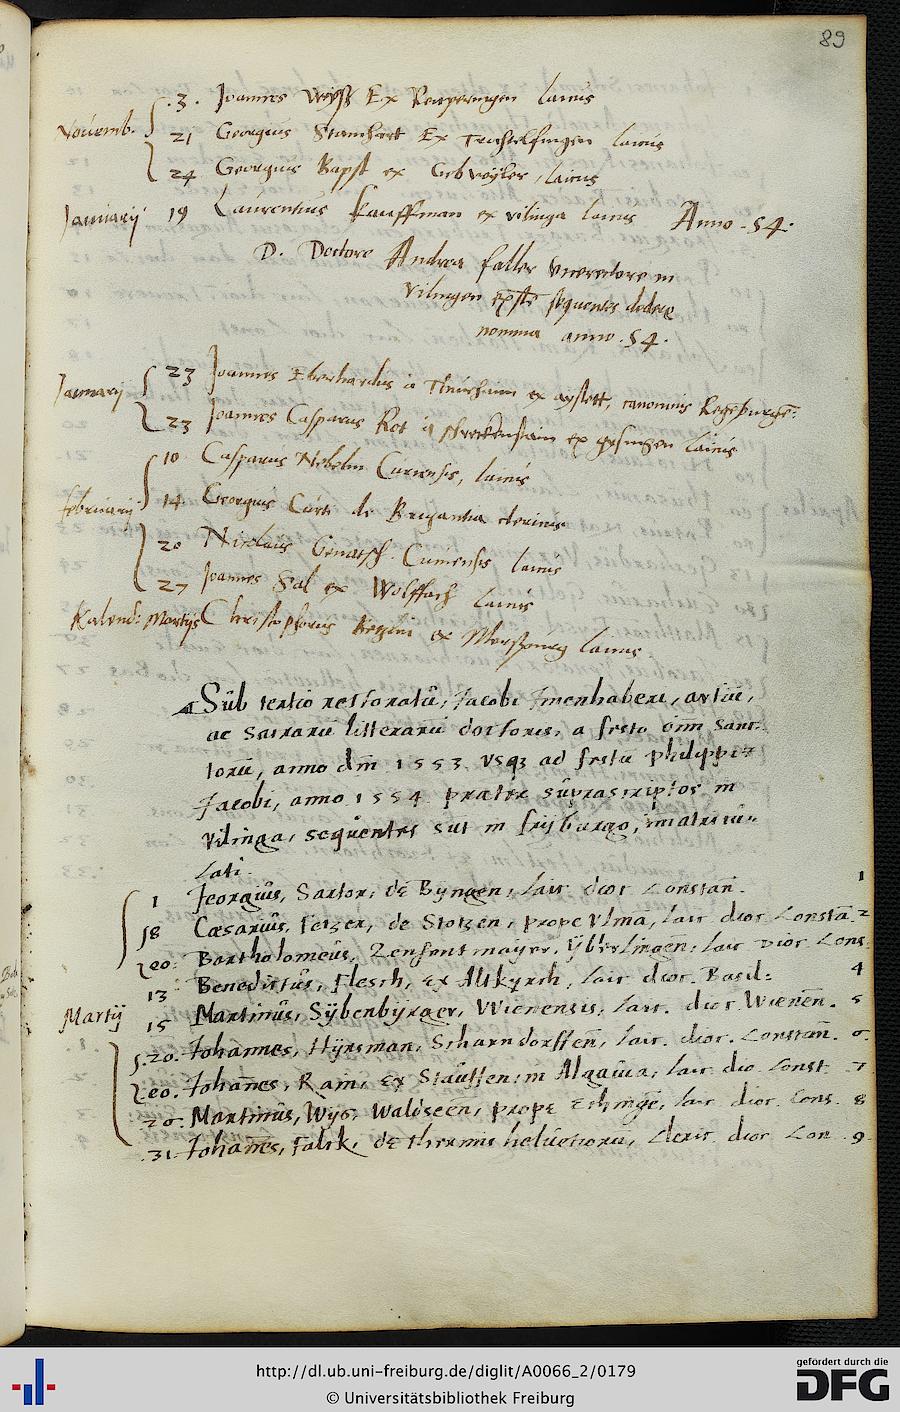 89
Nouemb. 3. Joannes Weyss Ex Reuperingen laicus
21 Georgius Stamhart Ex Trochtelfingen laicus
24 Georgius Bapst ex Gebweyler, laicus
Januarij 19 Laurentius Kauffman ex vilinga laicus Anno . 54.
D. Doctore Andrea faller vicerectore in
vilingen sequentes dedere
nomina anno . 54.
Januarij 23 Joannes Eberhardus à ex aystett, canonicus
23 Joannes Casparus Rot à schreckenstain ex laicus
10 Casparus Nebelin Curiensis, laicus
februarij 14. Georgius Curti de Brigantia clericus
20 Nicolaus Curiensis laicus
27 Joannes Sal ex Wolffach laicus
Kalend: Martijs Christophorus ex Mersburg laicus
Sub tertio rectoratu, Jacobi Imenhaberi, artiu,
ac Sacraru litteraru doctoris, a festo oim Sanc-
toru, anno dm 1553. vsq3 ad festu philippi et
Jacobi, anno 1554. prater suprascriptos in
vilinga, sequentes sut in friburgo, imatricu-
lati.
1 Jeorgius, Sartor, de Byngen, laic dioc Constan. 1
18 Cæsarius, Fetzer, de Stotzen, prope Vlma, laic dioc Constã. 2
20. Bartholomeus, Zensentmayer, Yberlingen, laic Dioc Cons.
13 Benedictus, Flesch, ex Altkyrch, laic dioc. Basil: 4
Martij 15 Martinus, Sybenbyrger, VVienensis, laic. dioc Wienen. 5
20. Johannes, Hyrsman, Scharndorffen, laic. dioc. Constan. 6
20. Johanes, Rain, ex Stauffen in Algauia, laic dio Const 7
20. Martinus, Wys, Waldseen, prope Echinge, laic dioc Cons. 8
31. Johanes, Falck, de thermis heluetioru, Cleric dioc Con 9
http://dl.ub.uni-freiburg.de/diglit/A0066_2/0179
© Universitätsbibliothek Freiburg
gefördert durch die
DFG